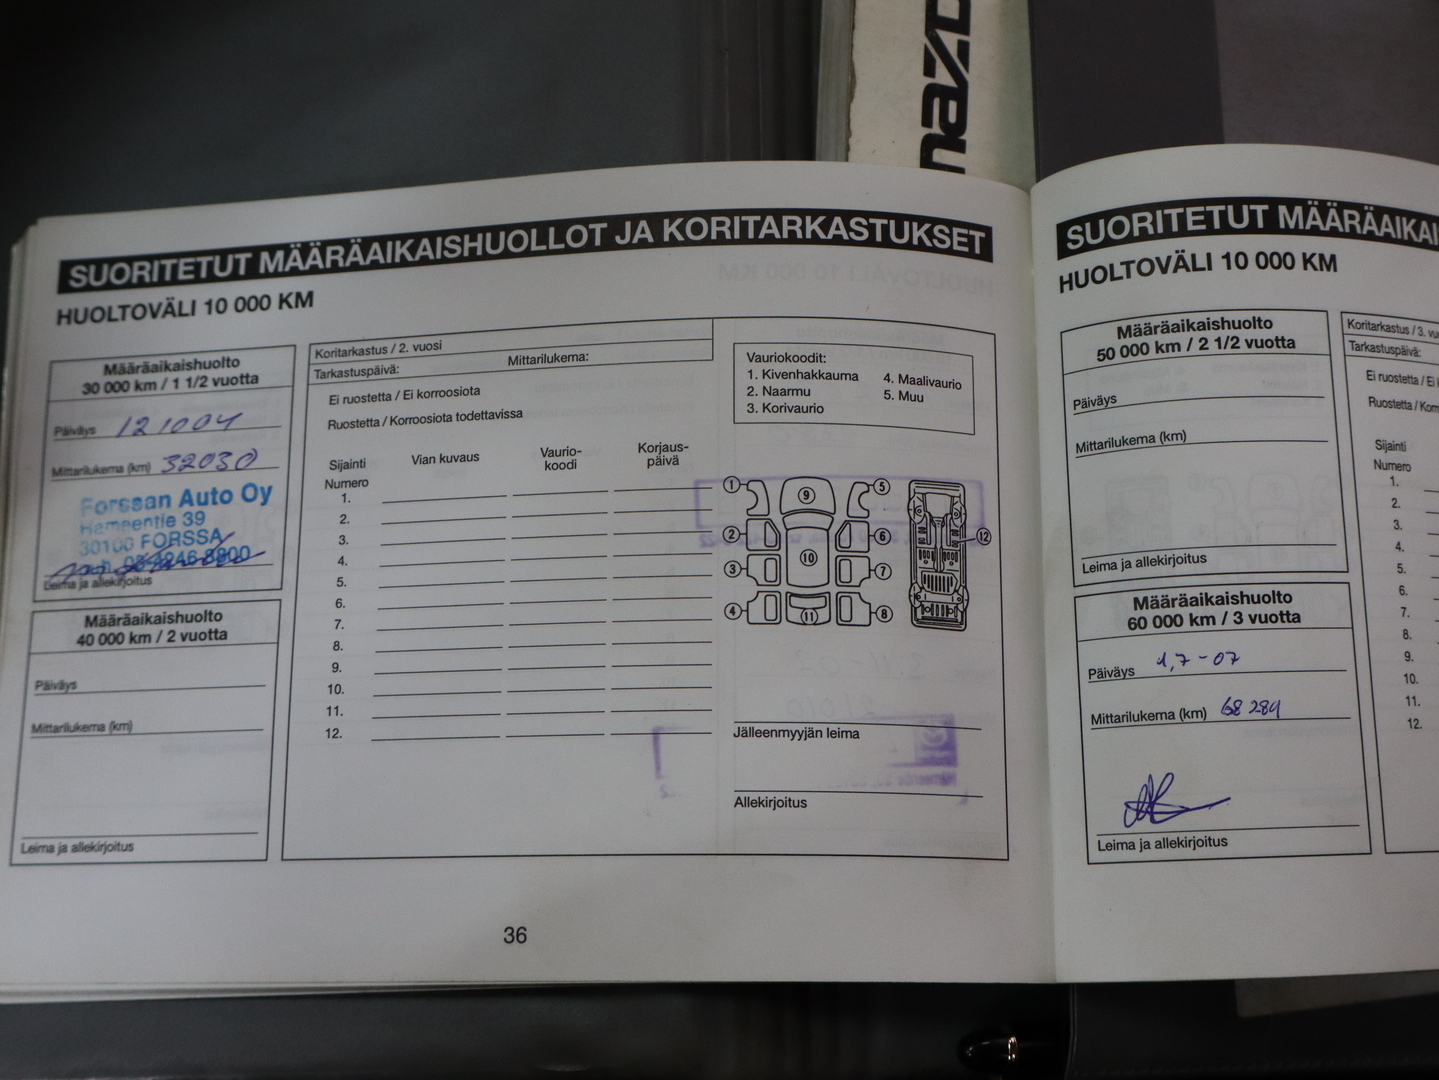 mazd
SUORITETUT MÄÄRÄAIKAISHUOLLOT JA KORITARKASTUKSET
HUOLTOVÄLI 10 000 KM
Määräaikaishuolto
30 000 km / 1 1/2 vuotta
Päiväys 121004
Mittarilukema (km) 32030
Forssan Auto Oy
Hämeentie 39
30100 FORSSA
Leima ja allekirjoitus
Määräaikaishuolto
40 000 km / 2 vuotta
Päiväys
Mittarilukema (km)
Leima ja allekirjoitus
Koritarkastus / 2. vuosi
Tarkastuspäivä: Mittarilukema:
Ei ruostetta / Ei korroosiota
Ruostetta / Korroosiota todettavissa
Sijainti Vian kuvaus Vaurio- Korjaus-
Numero koodi päivä
1.
2.
3.
4.
5.
6.
7.
8.
9.
10.
11.
12.
Vauriokoodit:
1. Kivenhakkauma 4. Maalivaurio
2. Naarmu 5. Muu
3. Korivaurio
1 9 5
2 6 12
3 10 7
4 11 8
Jälleenmyyjän leima
Allekirjoitus
36
SUORITETUT MÄÄRÄAIKAI
HUOLTOVÄLI 10 000 KM
Määräaikaishuolto
50 000 km / 2 1/2 vuotta
Päiväys
Mittarilukema (km)
Leima ja allekirjoitus
Määräaikaishuolto
60 000 km / 3 vuotta
Päiväys 1,7-07
Mittarilukema (km) 68284
Leima ja allekirjoitus
Koritarkastus / 3. vu
Tarkastuspäivä:
Ei ruostetta / Ei k
Ruostetta / Korr
Sijainti
Numero
1.
2.
3.
4.
5.
6.
7.
8.
9.
10.
11.
12.